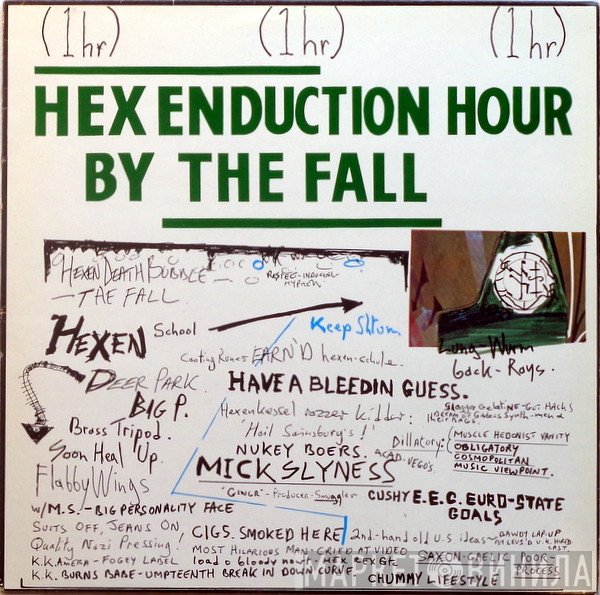 (1 hr) (1 hr) (1 hr)
HEX ENDUCTION HOUR
BY THE FALL
HEXEN DEATH BUBBLE —
— THE FALL.
HEXEN School
Keep Shtum
Casting Runes EARN'D hexen-schule.
Lung Worm
back-Rays.
DEER PARK.
HAVE A BLEEDIN GUESS.
BIG P.
Hexenkessel rozzer killder:
Brass Tripod.
'Hail Sainsbury's!'
Dillatory:
MUSCLE HEDONIST VANITY
OBLIGATORY
COSMOPOLITAN
MUSIC VIEWPOINT.
Soon Heal Up
NUKEY BOERS.
ACAD. VEGO'S.
Flabby Wings
MICK SLYNESS
'GINGR' - Producer - Smuggler
CUSHY E.E.C. EURO-STATE
GOALS
W/M.S. - BIG PERSONALITY FACE
SUITS OFF, JEANS ON
CIGS. SMOKED HERE
2nd-hand old U.S ideas -
Quality Nazi Pressing!
MOST HILARIOUS MAN - CRIED AT VIDEO
SAXON-GAELIC POOR-
PROCESS
K.K. AMERA - FOGEY LABEL
load o bloody nowt / HEX REX GF.
K.K. BURNS BABE - UMPTEENTH BREAK IN DOWN CURVE.
CHUMMY LIFESTYLE
МАРКЕТ ВИНИЛА